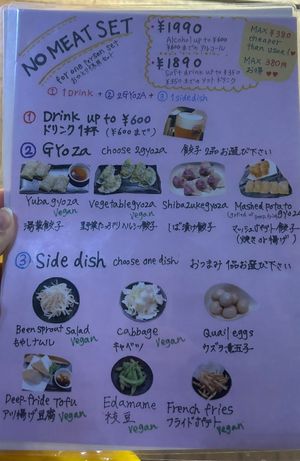 NO MEAT SET
for one person set
¥1990
Alcohol up to ¥600
¥600までアルコール
¥1890
Soft drink up to ¥350
¥350までソフトドリンク
MAX ¥380
cheaper
than usual!
MAX 380円
お得
① 1 Drink + ② 2Gyoza + ③ 1 side dish
① Drink up to ¥600
ドリンク1杯 (¥600まで)
② Gyoza choose 2gyoza 餃子 2品お選び下さい
Yuba gyoza
vegan
湯葉餃子
Vegetable gyoza
vegan
野菜たっぷりヘルシー餃子
Shibazuke gyoza
しば漬け餃子
Mashed potato
gyoza
マッシュポテト餃子
(焼き or 揚げ)
③ Side dish choose one dish おつまみ 1品お選び下さい
Been sprout salad
もやしナムル vegan
Cabbage
キャベツ vegan
Quail eggs
ウズラ煮玉子
Deep fride Tofu
アツ揚げ豆腐 vegan
Edamame
枝豆 vegan
French fries
フライドポテト vegan